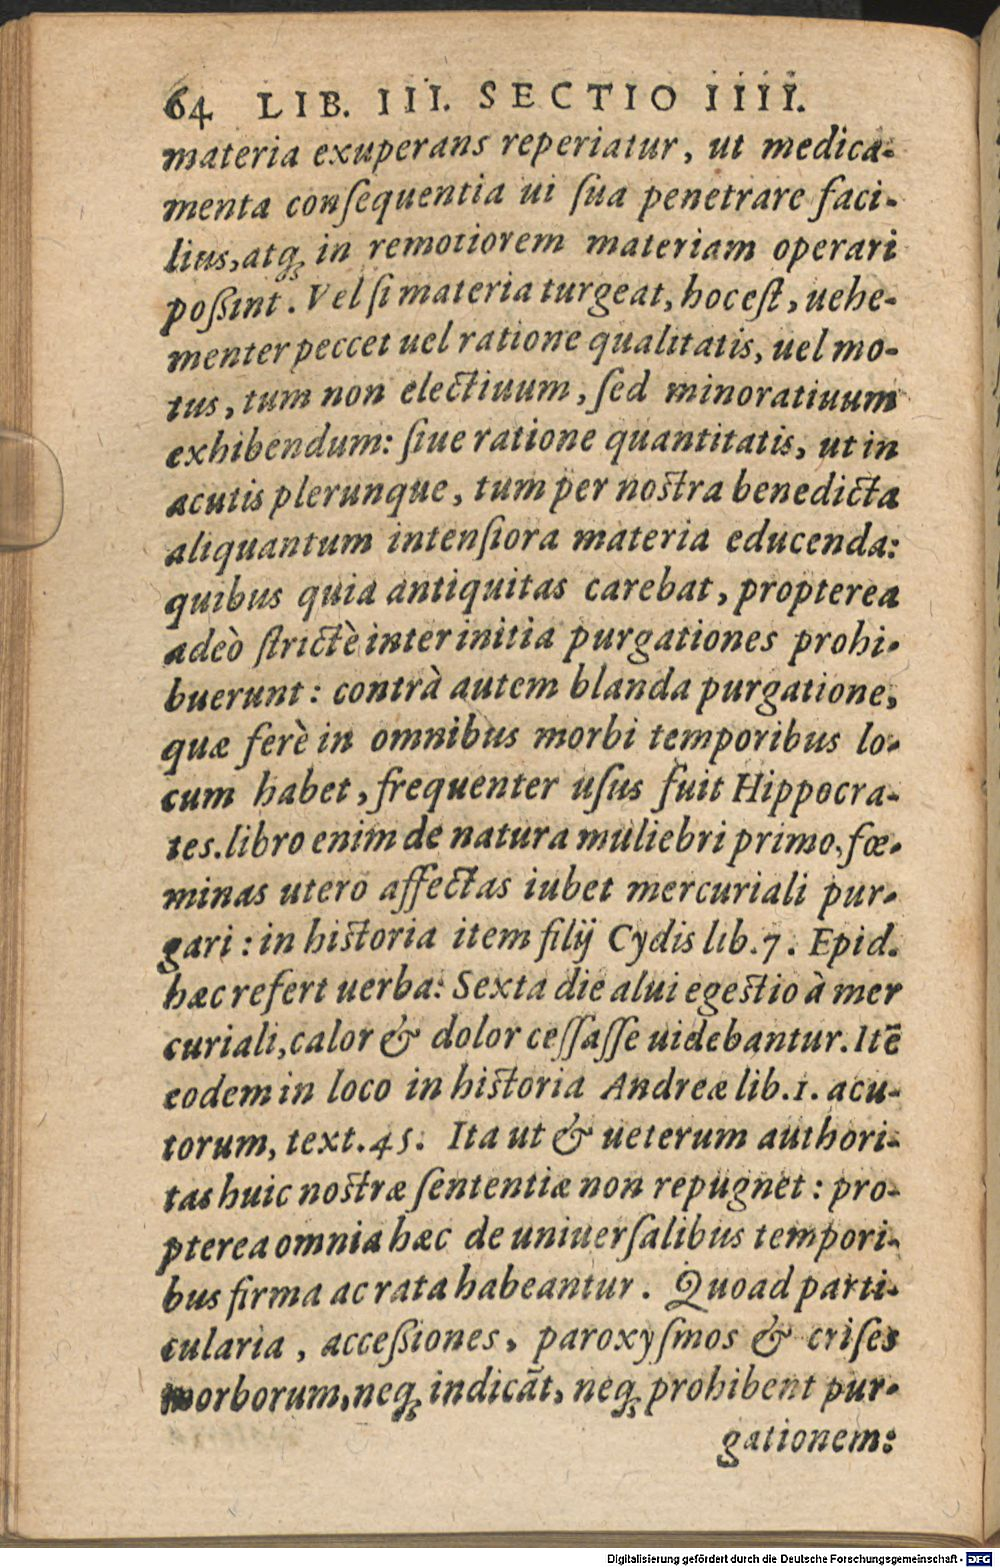 64 LIB. III. SECTIO IIII.
materia exuperans reperiatur, ut medica-
menta conſequentia ui ſua penetrare faci-
lius, atq; in remotiorem materiam operari
poßint. Vel ſi materia turgeat, hoc eſt, uehe-
menter peccet uel ratione qualitatis, uel mo-
tus, tum non electiuum, ſed minoratiuum
exhibendum: ſiue ratione quantitatis, ut in
acutis plerunque, tum per noſtra benedicta
aliquantum intenſiora materia educenda:
quibus quia antiquitas carebat, propterea
adeò ſtrictè inter initia purgationes prohi-
buerunt: contrà autem blanda purgatione,
quæ ferè in omnibus morbi temporibus lo-
cum habet, frequenter uſus fuit Hippocra-
tes. libro enim de natura muliebri primo, fœ-
minas utero affectas iubet mercuriali pur-
gari: in hiſtoria item filij Cydis lib. 7. Epid.
hæc refert uerba: Sexta die alui egeſtio à mer
curiali, calor & dolor ceſſaſſe uidebantur. Itē
eodem in loco in hiſtoria Andreæ lib. 1. acu-
torum, text. 45. Ita ut & ueterum authori-
tas huic noſtræ ſententiæ non repugnet: pro-
pterea omnia hæc de uniuerſalibus tempori-
bus firma ac rata habeantur. Quoad parti-
cularia, acceßiones, paroxyſmos & criſes
morborum, neq; indicāt, neq; prohibent pur-
gationem:
Digitalisierung gefördert durch die Deutsche Forschungsgemeinschaft - DFG